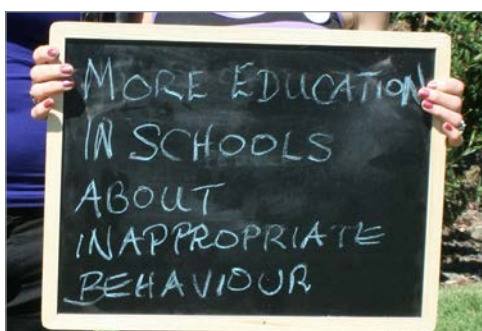 MORE EDUCATION
IN SCHOOLS
ABOUT
INAPPROPRIATE
BEHAVIOUR